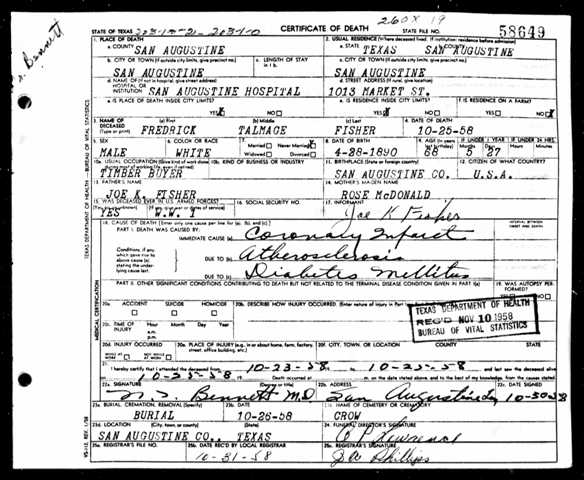 260X 19
STATE OF TEXAS CERTIFICATE OF DEATH STATE FILE NO. 58649
1. PLACE OF DEATH
a. COUNTY SAN AUGUSTINE
2. USUAL RESIDENCE (Where deceased lived. If institution: residence before admission)
a. STATE TEXAS b. COUNTY SAN AUGUSTINE
b. CITY OR TOWN (If outside city limits, give precinct no.) SAN AUGUSTINE
c. LENGTH OF STAY in 1 b.
c. CITY OR TOWN (If outside city limits, give precinct no.) SAN AUGUSTINE
d. NAME OF (If not in hospital, give street address) HOSPITAL OR INSTITUTION SAN AUGUSTINE HOSPITAL
d. STREET ADDRESS (If rural, give location) 1013 MARKET ST.
e. IS PLACE OF DEATH INSIDE CITY LIMITS? YES NO
e. IS RESIDENCE INSIDE CITY LIMITS? YES NO
f. IS RESIDENCE ON A FARM? YES NO
3. NAME OF DECEASED (Type or print)
(a) First FREDRICK
(b) Middle TALMAGE
(c) Last FISHER
4. DATE OF DEATH 10-25-58
5. SEX MALE
6. COLOR OR RACE WHITE
7. Married Never Married Widowed Divorced
8. DATE OF BIRTH 4-28-1890
9. AGE (In years 68
IF UNDER 1 YEAR IF UNDER 24 HRS.
5 27
10a. USUAL OCCUPATION (Give kind of work done during most of working life, even if retired) TIMBER BUYER
10b. KIND OF BUSINESS OR INDUSTRY
11. BIRTHPLACE (State or foreign country) SAN AUGUSTINE CO.
12. CITIZEN OF WHAT COUNTRY? U.S.A.
13. FATHER'S NAME JOE K. FISHER
14. MOTHER'S MAIDEN NAME ROSE McDONALD
15. WAS DECEASED EVER IN U.S. ARMED FORCES? YES W.W. I
16. SOCIAL SECURITY NO.
17. INFORMANT Joe K Fisher
18. CAUSE OF DEATH [Enter only one cause per line for (a), (b), and (c).]
INTERVAL BETWEEN ONSET AND DEATH
PART I. DEATH WAS CAUSED BY:
IMMEDIATE CAUSE (a) Coronary Infarct
Conditions, if any, which gave rise to above cause (a) stating the underlying cause last.
DUE TO (b) Atherosclerosis
DUE TO (c) Diabetes Mellitus
PART II. OTHER SIGNIFICANT CONDITIONS CONTRIBUTING TO DEATH BUT NOT RELATED TO THE TERMINAL DISEASE CONDITION GIVEN IN PART I(a)
19. WAS AUTOPSY PERFORMED? YES NO
20a. ACCIDENT SUICIDE HOMICIDE
20b. DESCRIBE HOW INJURY OCCURRED. (Enter nature of injury in Part I
20c. TIME OF INJURY Hour a.m. p.m. Month Day Year
TEXAS DEPARTMENT OF HEALTH
REC'D NOV 10 1958
BUREAU OF VITAL STATISTICS
20d. INJURY OCCURRED WHILE AT WORK NOT WHILE AT WORK
20e. PLACE OF INJURY (e.g., in or about home, farm, factory, street, office building, etc.)
20f. CITY, TOWN, OR LOCATION COUNTY STATE
21. I hereby certify that I attended the deceased from 10-23-58 to 10-25-58 and last saw the deceased alive
on 10-25-58 Death occurred at m. on the date stated above, and to the best of my knowledge, from the causes stated.
22a. SIGNATURE Bennett M.D. (Degree or title)
22b. ADDRESS San Augustine
22c. DATE SIGNED 10-30-58
23a. BURIAL, CREMATION, REMOVAL (Specify) BURIAL
23b. DATE 10-26-58
23c. NAME OF CEMETERY OR CREMATORY CROW
23d. LOCATION (City, town, or county) (State) SAN AUGUSTINE CO., TEXAS
24. FUNERAL DIRECTOR'S SIGNATURE
25a. REGISTRAR'S FILE NO.
25b. DATE REC'D BY LOCAL REGISTRAR 10-31-58
25c. REGISTRAR'S SIGNATURE Phillips
TEXAS DEPARTMENT OF HEALTH—BUREAU OF VITAL STATISTICS
MEDICAL CERTIFICATION
Bennett